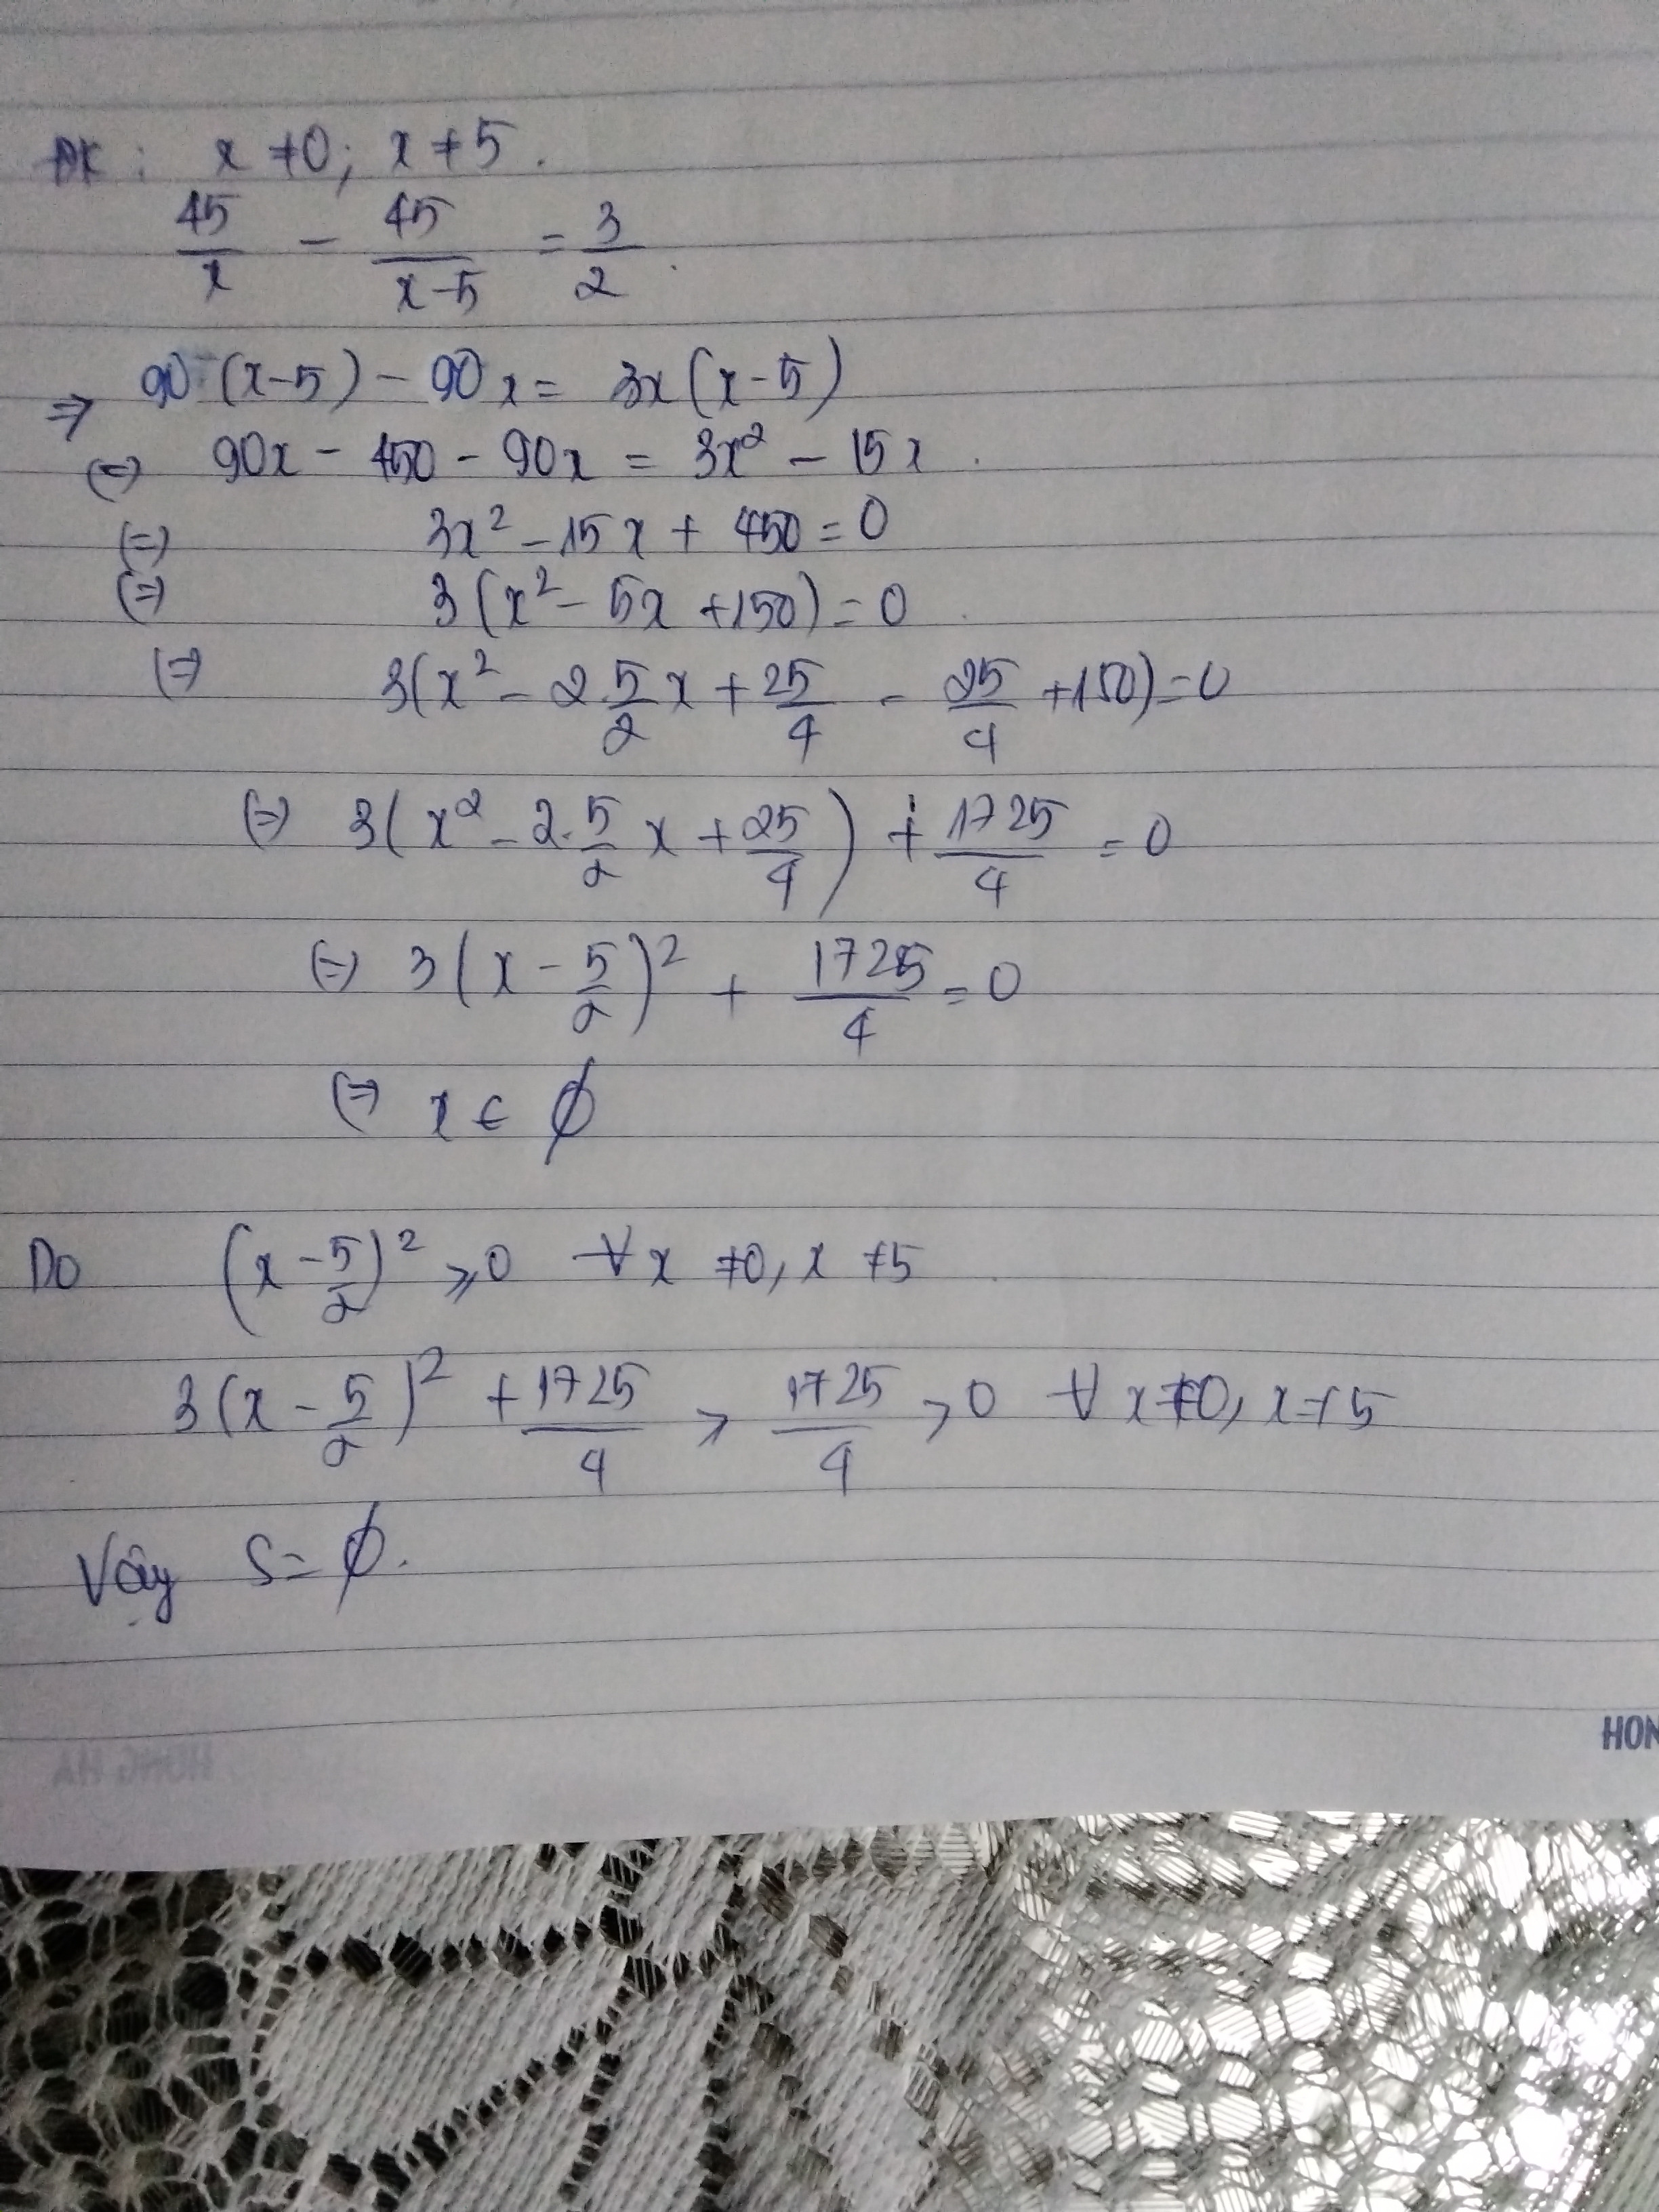 ĐK: x ≠ 0; x ≠ 5.
45/x - 45/(x-5) = 3/2.
⇒ 90(x-5) - 90x = 3x(x-5)
(=) 90x - 450 - 90x = 3x² - 15x.
(=) 3x² - 15x + 450 = 0
(=) 3(x² - 5x + 150) = 0.
(=) 3(x² - 2.5/2 x + 25/4 - 25/4 + 150) = 0
(=) 3(x² - 2.5/2 x + 25/4) + 1725/4 = 0
(=) 3(x - 5/2)² + 1725/4 = 0
(=) x ∈ ∅
Do (x - 5/2)² ≥ 0 ∀x ≠ 0, x ≠ 5
3(x - 5/2)² + 1725/4 ≥ 1725/4 > 0 ∀x ≠ 0, x ≠ 5
Vậy S = ∅.
HON
HONG HA